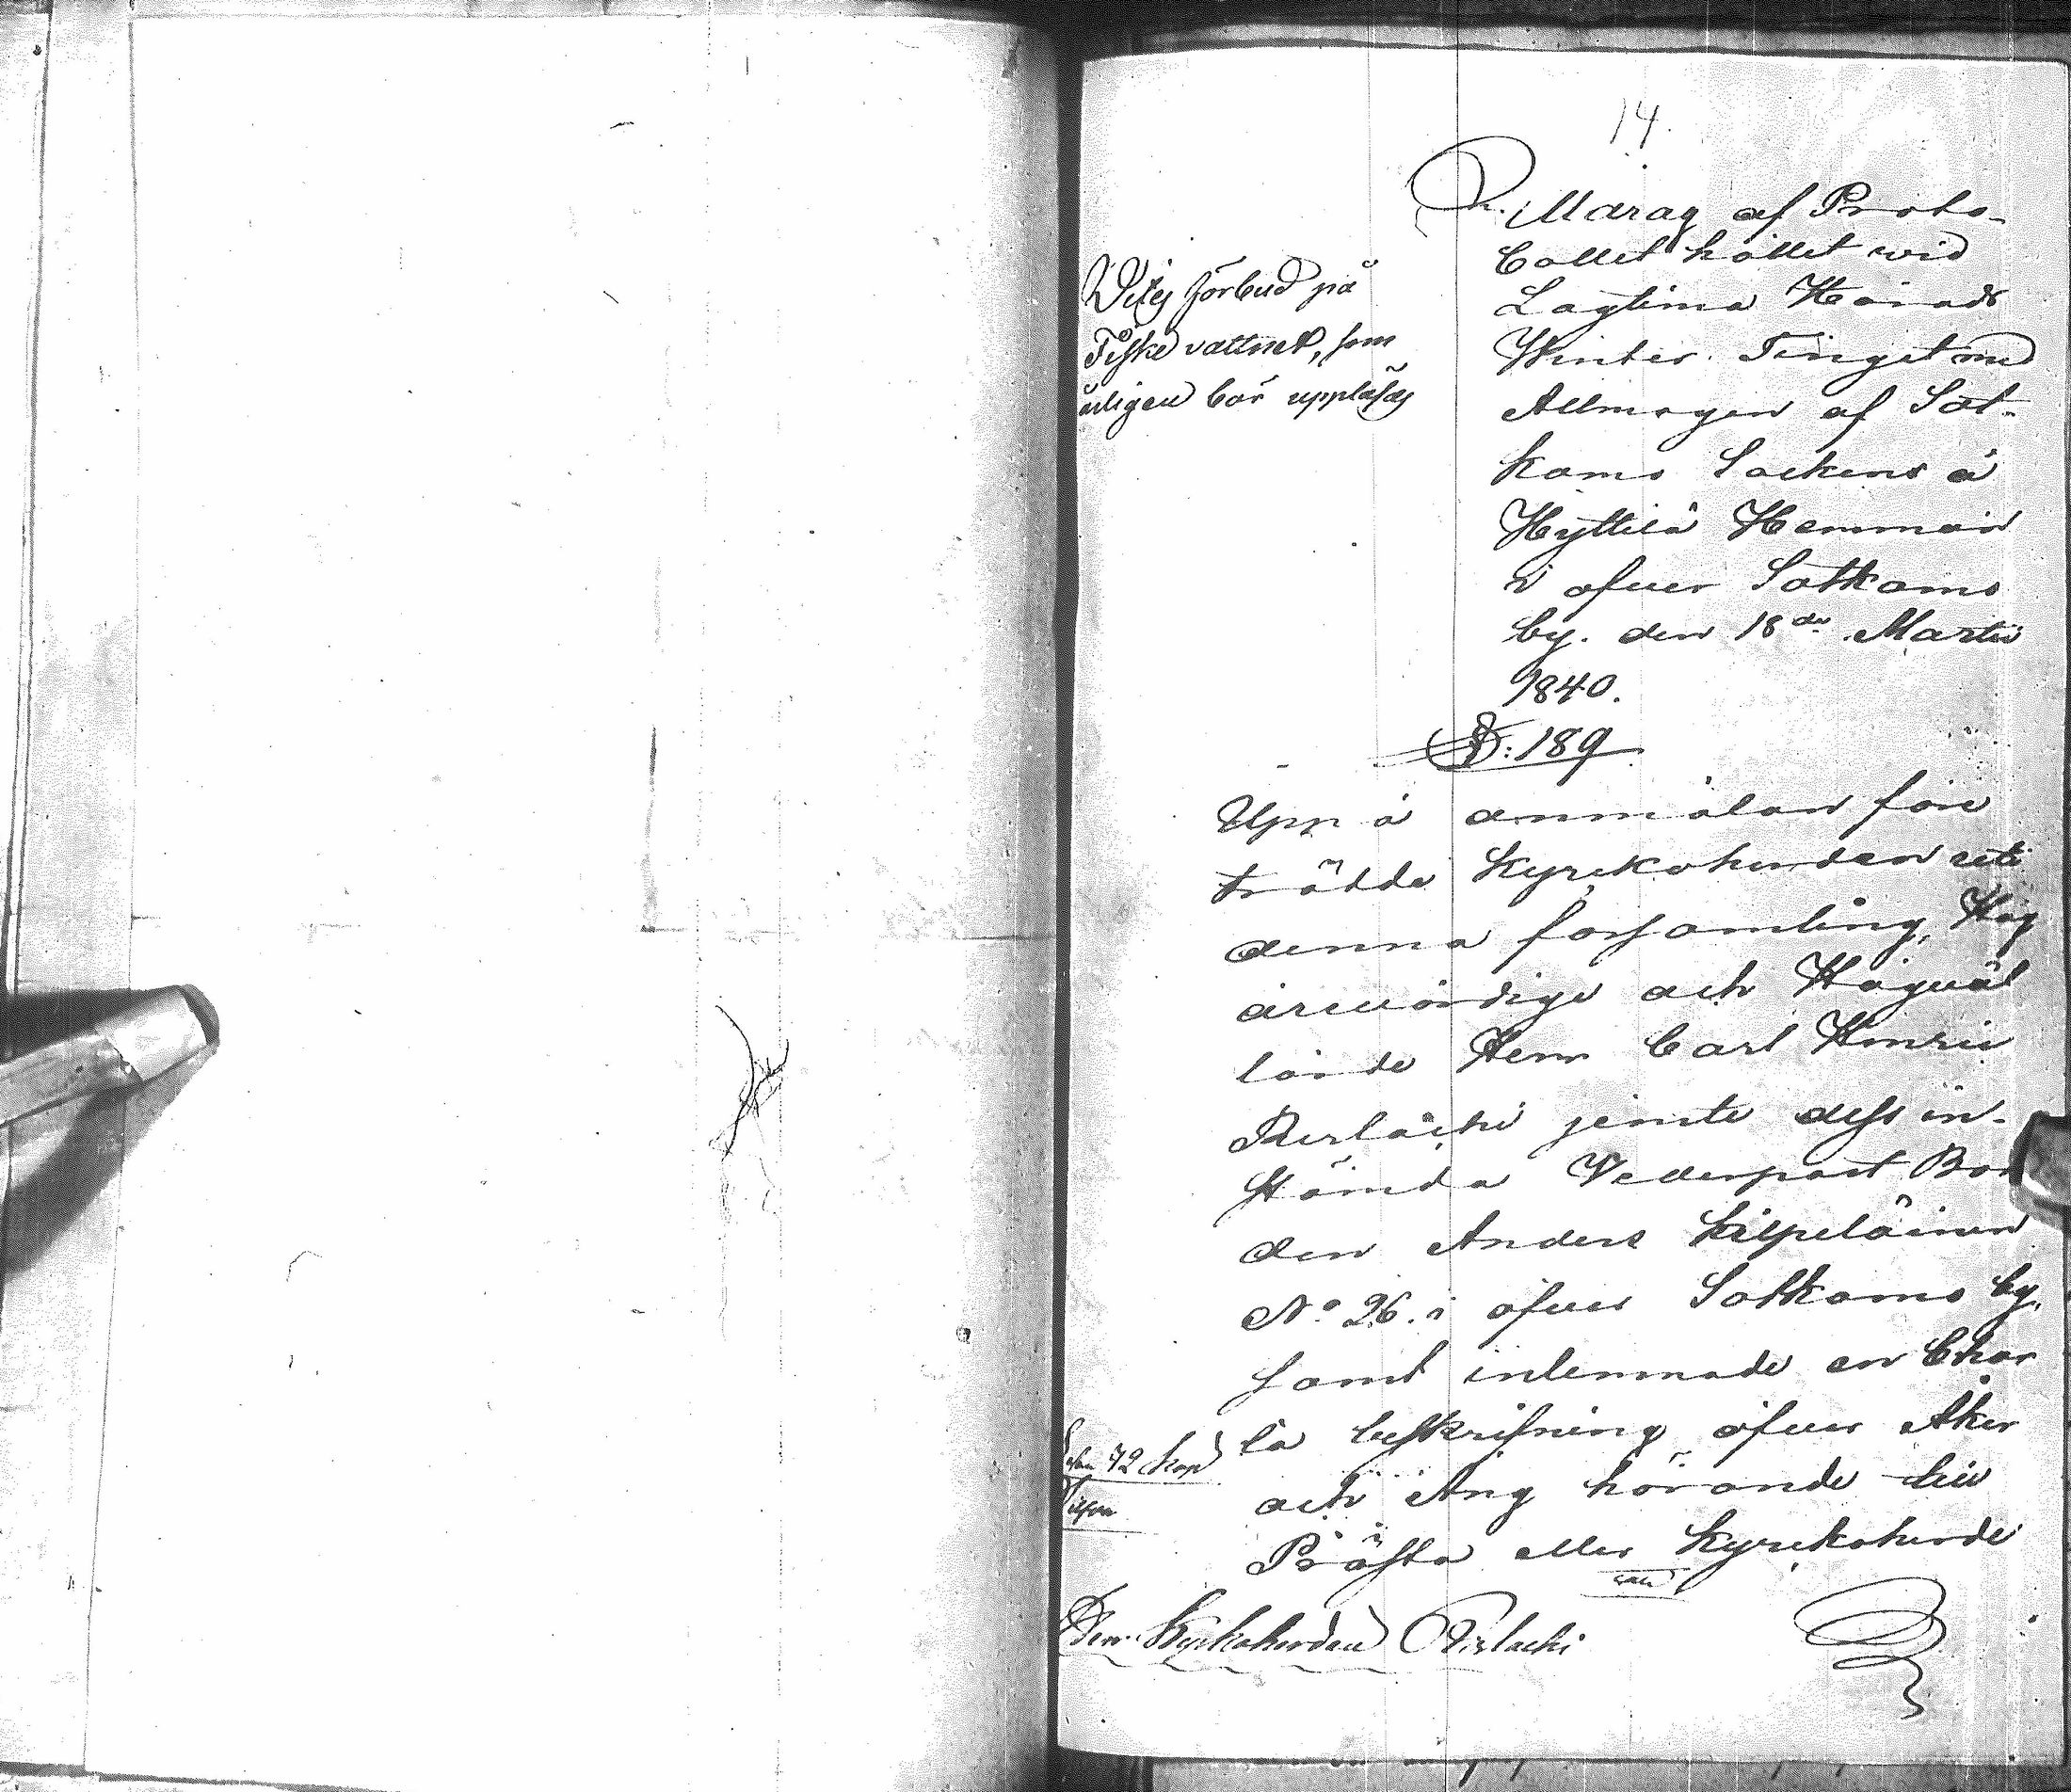 14.
Utdrag af Proto-
collet hållet wid
Lagtima Härads
Winter Tinget med
Allmogen af Sot-
kamo Sockens å
Hyttilä Hemman
i öfver Sotkamo
by. den 18de Martii
1840.
Vites förbud på
Fiske vattnet, som
årligen bör uppläsas
§: 189
Uppå anmälan före
trädde Kyrkoherden uti
denna församling, Hög
ärevördige och Högväl
lärde Herr Carl Henric
Perlachi jemte dess in-
stämda Vederpart Bon
den Anders Kilpeläinen
No 26. i öfver Sotkamo by,
samt inlemnade en Char
ta beskrifning öfver Åker
och Äng hörande till
Prästa eller Kyrkoherde
72 kop
Herr Kyrkoherden Perlachi